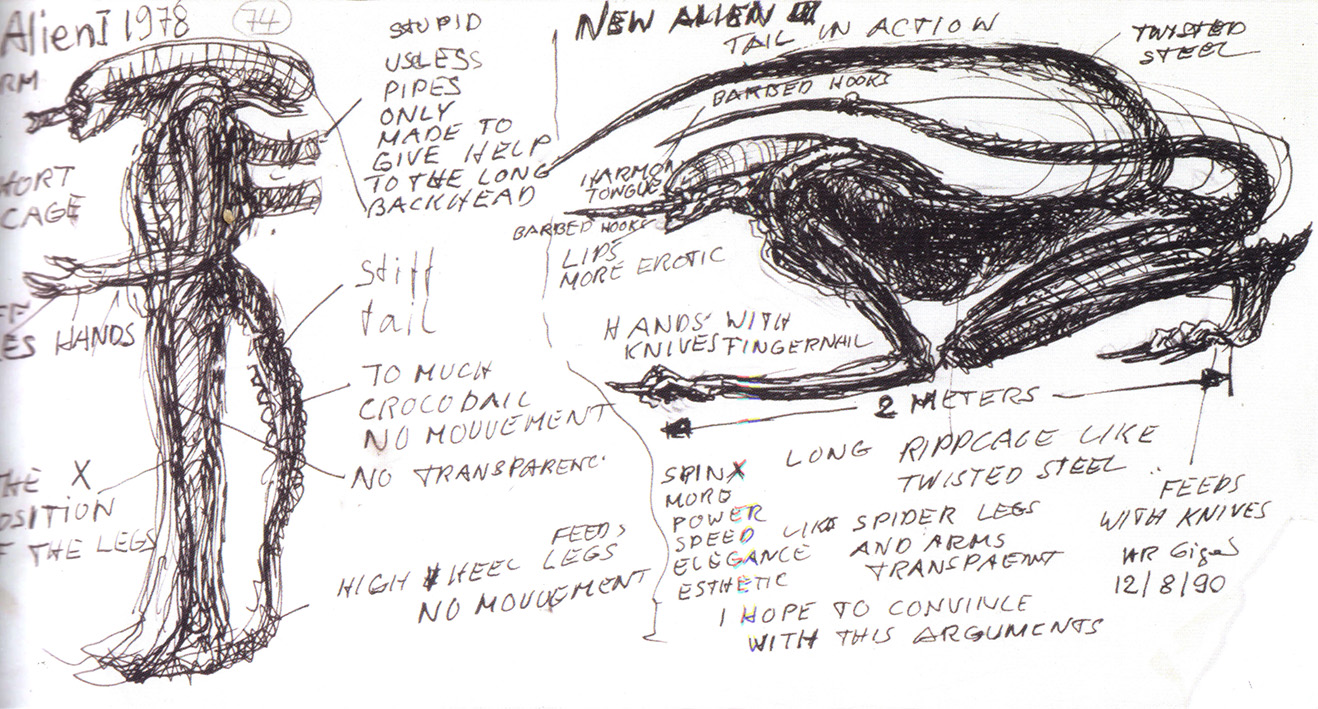 Alien I 1978
74
RM
HORT
CAGE
FF
ES HANDS
THE X
OSITION
F THE LEGS
STUPID
USELESS
PIPES
ONLY
MADE TO
GIVE HELP
TO THE LONG
BACKHEAD
stiff
tail
TO MUCH
CROCODAIL
NO MOUVEMENT
NO TRANSPARENC
FEEDS
HIGH HEEL LEGS
NO MOUVEMENT
NEW ALIEN III
TAIL IN ACTION
TWISTED
STEEL
BARBED HOOKS
HARMON
TONGUE
BARBED HOOKS
LIPS
MORE EROTIC
HANDS WITH
KNIVES FINGERNAIL
2 METERS
SPINX
MORE
POWER
SPEED
ELEGANCE
ESTHETIC
LONG RIPPCAGE LIKE
TWISTED STEEL
LIKE SPIDER LEGS
AND ARMS
TRANSPAENT
FEEDS
WITH KNIVES
HR Giger
12/8/90
I HOPE TO CONVINCE
WITH THIS ARGUMENTS